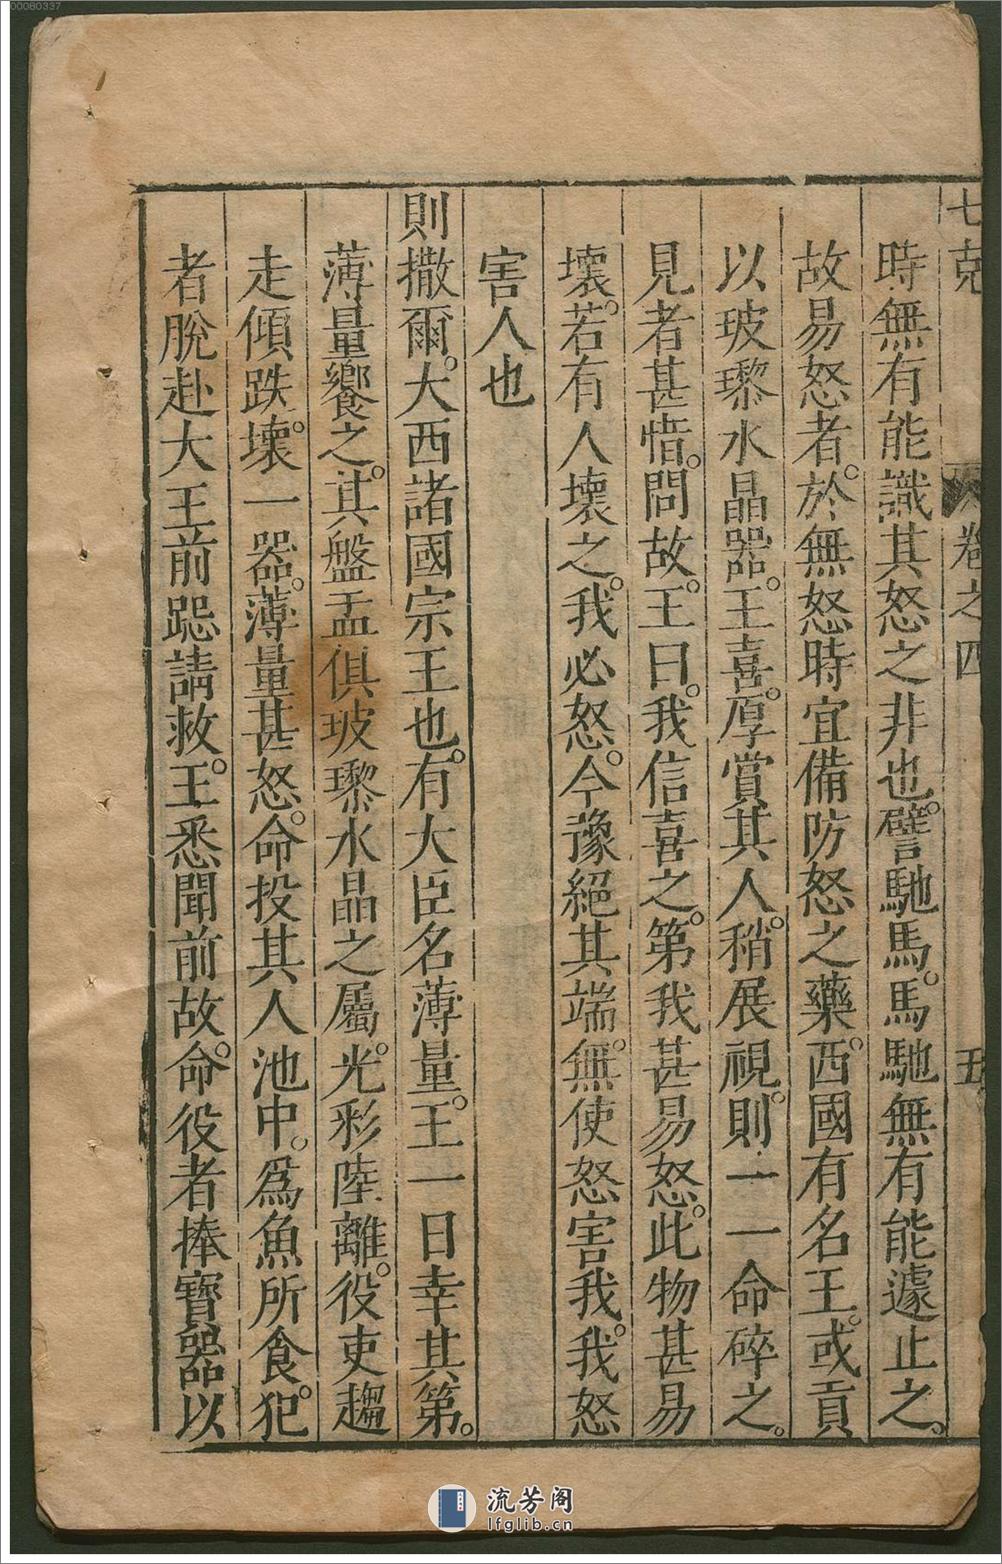 00080337
七克
卷之四
五
時無有能識其怒之非也。譬馳馬。馬馳無有能遽止之。
故易怒者。於無怒時宜備防怒之藥。西國有名王。或貢
以玻瓈水晶器。王喜。厚賞其人。稍展視。則一一命碎之。
見者甚惜。問故。王曰。我信喜之。第我甚易怒。此物甚易
壞。若有人壞之。我必怒。今豫絕其端。無使怒害我。我怒
害人也
則撒爾。大西諸國宗王也。有大臣名薄量。王一日幸其第。
薄量饗之。其盤盂俱玻瓈水晶之屬。光彩陸離。役吏趨
走傾跌。壞一器。薄量甚怒。命投其人池中。爲魚所食。犯
者脫赴大王前跽請救。王悉聞前故。命役者捧寶器以
流芳阁
lfglib.cn